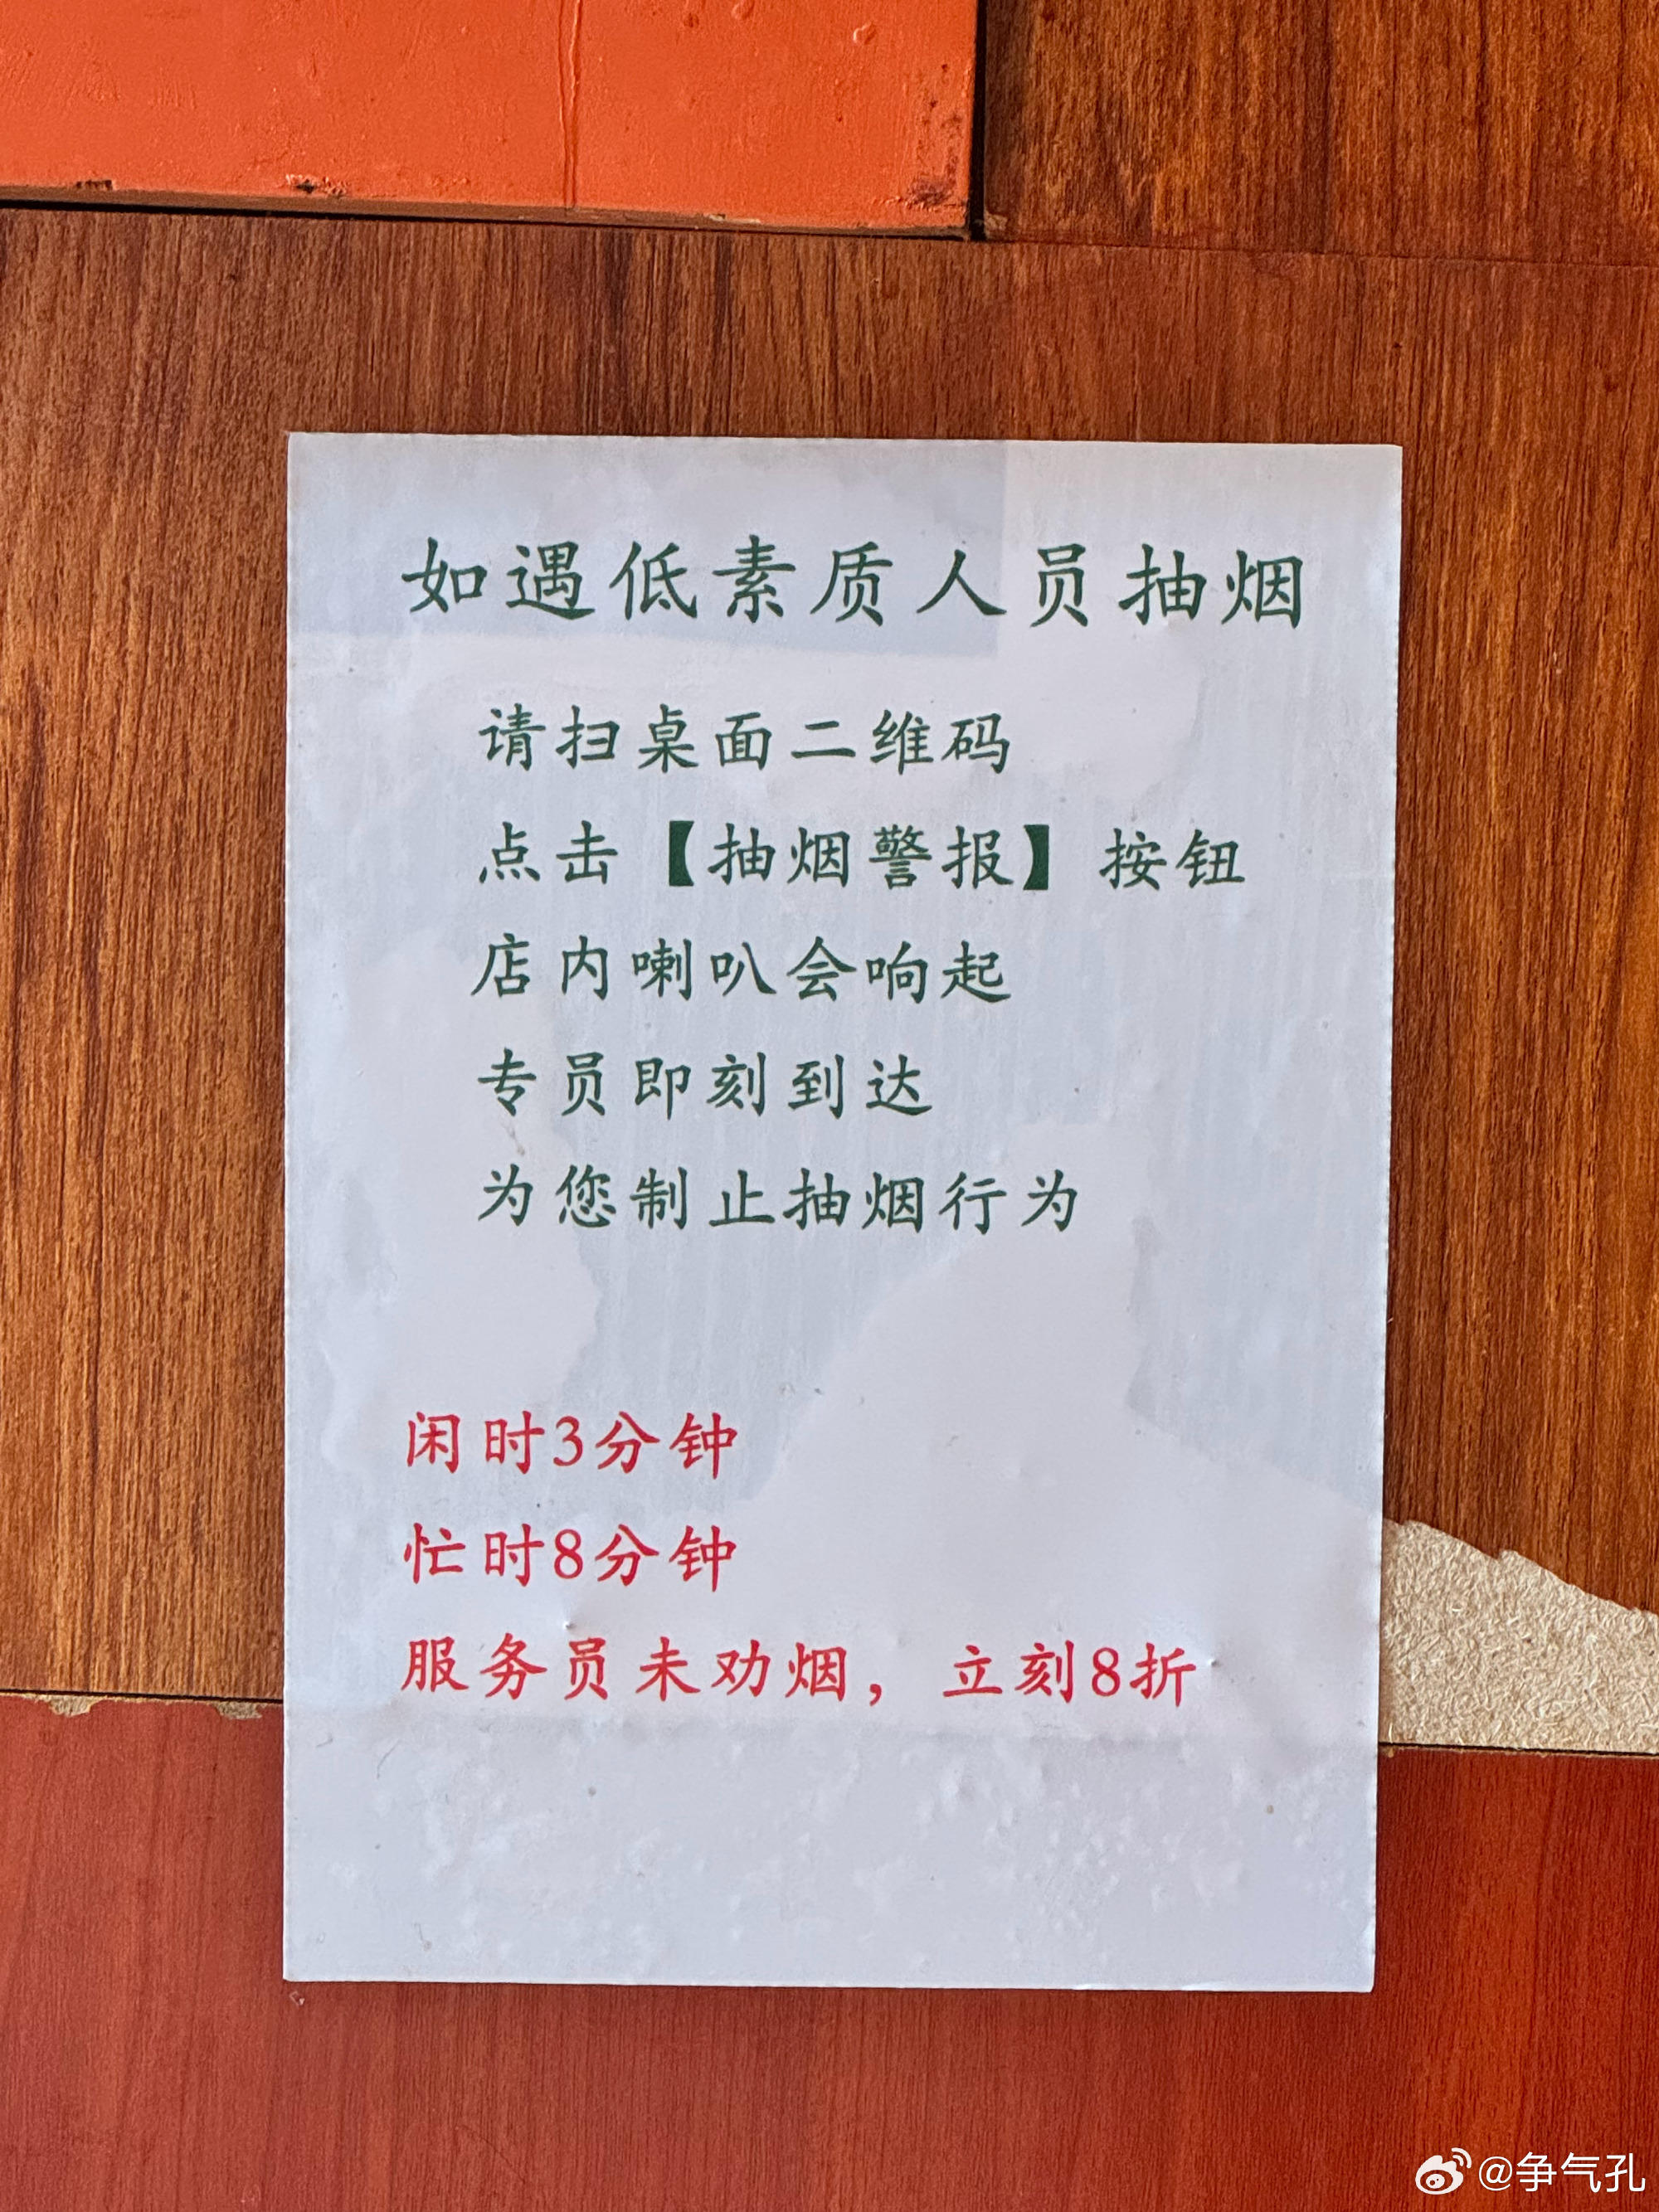 如遇低素质人员抽烟
请扫桌面二维码
点击【抽烟警报】按钮
店内喇叭会响起
专员即刻到达
为您制止抽烟行为
闲时3分钟
忙时8分钟
服务员未劝烟，立刻8折
@争气孔